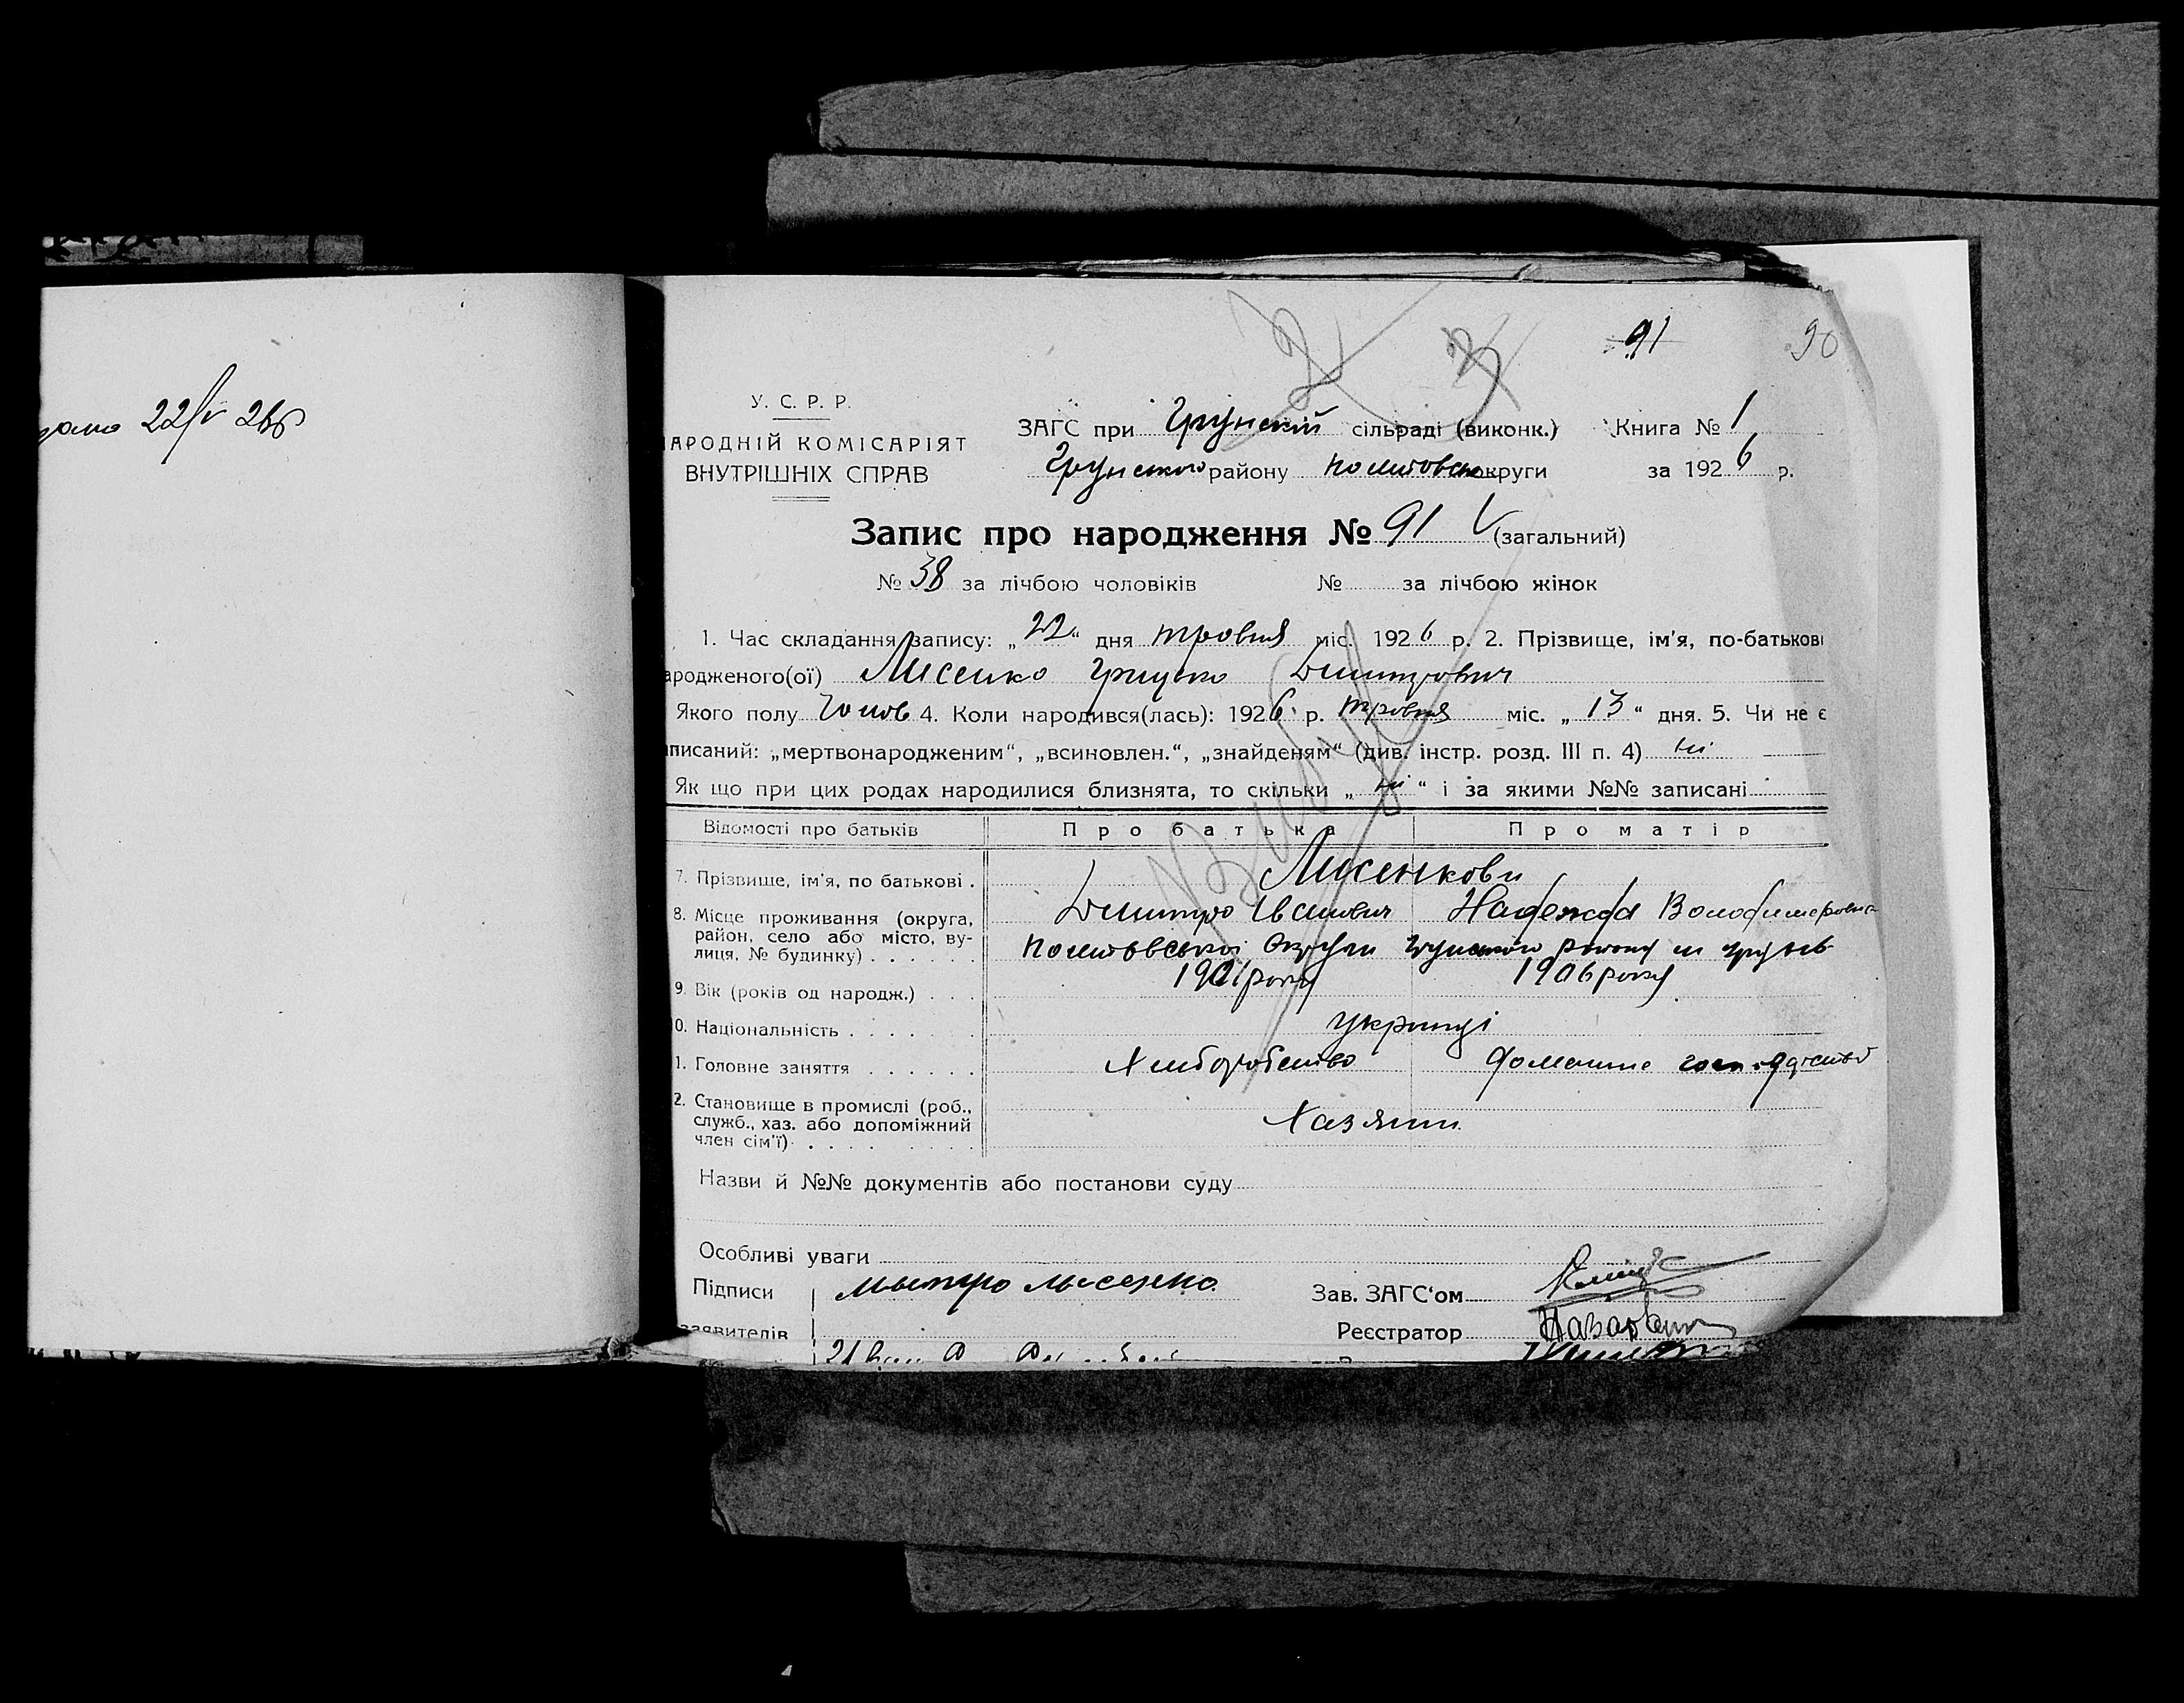 22/V 26р
91
90
У. С. Р. Р.
АРОДНІЙ КОМІСАРІЯТ
ВНУТРІШНІХ СПРАВ
ЗАГС при Грунській сільраді (виконк.) Книга № 1
Грунського району Полтовськ округи за 1926 р.
Запис про народження № 91 (загальний)
№ 38 за лічбою чоловіків № за лічбою жінок
1. Час складання запису: „22“ дня травня міс. 1926 р. 2. Прізвище, ім'я, по-батькові
ародженого(ої) Лисенко Грицько Дмитрович
Якого полу Чолов 4. Коли народився(лась): 1926 р. травня міс. „13“ дня. 5. Чи не є
аписаний: „мертвонародженим“, „всиновлен.“, „знайденям“ (див. інстр. розд. III п. 4) ні
Як що при цих родах народилися близнята, то скільки „ні“ і за якими №№ записані
Відомості про батьків Про батька Про матір
7. Прізвище, ім'я, по батькові . Лисенкови
Дмитро Іванович Надежда Володимеровна
8. Місце проживання (округа, район, село або місто, вулиця, № будинку) . . . . . . Полтовської Округи Грунського району м Грунь
9. Вік (років од народж.) . . . 1901 року 1906 року
0. Національність . . . . . українці
1. Головне заняття . . . . . . Хліборобство домашне господарство
2. Становище в промислі (роб., служб., хаз. або допоміжний член сім'ї) . . . . . . . . Хазяїни
Назви й №№ документів або постанови суду
Особливі уваги
Підписи Мытро лисенко Зав. ЗАГС'ом
заявителів Реєстратор